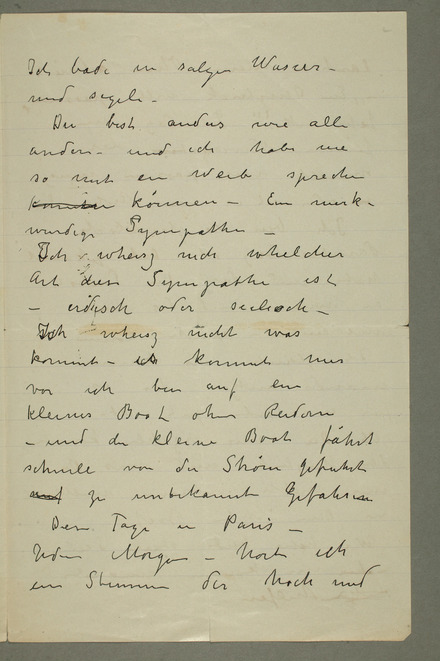 Ich bade in salzen Wasser –
und segele –
Du bist anders wie alle
andern – und ich habe nie
so mit ein Weib sprechen
können – Ein merk-
wurdige Sympathie –
Ich wheisz nich whelcher
Art diese Sympathie ist
– erdisch oder seelisch –
Ich wheisz nicht was
kommt – es kommt mir
vor ich bin auf ein
kleines Boot ohne Rudern
– und die kleine Boot fährt
schnelle von der Ström gefuhrt
zu unbekannte Gefahren
Dein Tage in Paris –
Jeden Morgen – horte ich
ein Stimme der hoch und